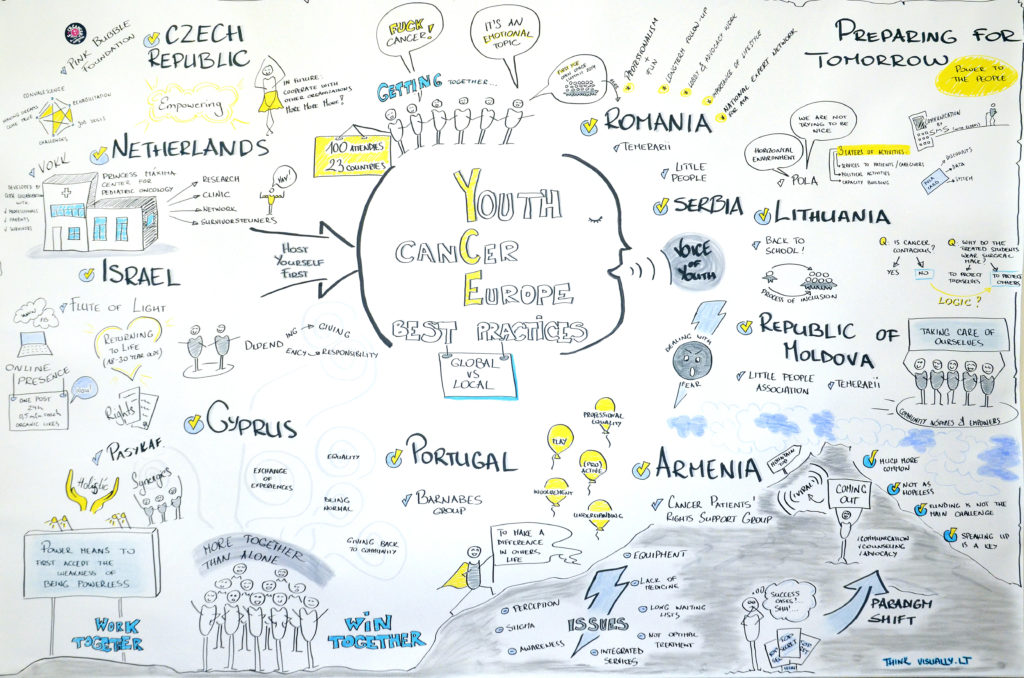 PINK BUBBLE
FOUNDATION
CZECH
REPUBLIC
Empowering
IN FUTURE:
COOPERATE WITH
OTHER ORGANIZATIONS
MORE MORE MORE!
CONVALESCENCE
REHABILITATION
MAKING DREAMS
COME TRUE
JOB SKILLS
CHALLENGES
FUCK
CANCER!
IT'S AN
EMOTIONAL
TOPIC
GETTING TOGETHER...
100 ATTENDIES
23 COUNTRIES
PROFESSIONALISM
FUN
LONGTERM FOLLOW-UP
LOBBY & ADVOCACY WORK
IMPORTANCE OF LIFESTYLE
NATIONAL EXPERT NETWORK
FOR AYA
ROMANIA
TEMERARII
LITTLE
PEOPLE
PREPARING FOR
TOMORROW
POWER TO
THE PEOPLE
WE ARE NOT
TRYING TO BE
NICE
HORIZONTAL
ENVIRONMENT
POLA
3 LAYERS OF ACTIVITIES:
SERVICES TO PATIENTS/CAREGIVERS
POLITICAL ACTIVITIES
CAPACITY BUILDING
COMMUNICATION
BY
SMS
POLA
CARD
DISCOUNTS
DATA
SYSTEM
VOKK
NETHERLANDS
DEVELOPED IN
CLOSE COLLABORATION
WITH
PROFESSIONALS
PARENTS
SURVIVORS
PRINCESS MÁXIMA
CENTER FOR
PEDIATRIC ONCOLOGY
RESEARCH
CLINIC
NETWORK
SURVIVORSTEUNERS
HEY!
HOST
YOURSELF
FIRST
YOUTH
CANCER
EUROPE
BEST PRACTICES
GLOBAL
VS
LOCAL
VOICE
OF
YOUTH
SERBIA
LITHUANIA
BACK TO
SCHOOL!
PROCESS OF INCLUSION
Q: IS CANCER
CONTAGIOUS?
YES
NO
Q: WHY DO THE
TREATED STUDENTS
WEAR SURGICAL
MASK?
TO PROTECT
THEMSELVES
TO PROTECT
OTHERS
LOGIC?
ISRAEL
FLUTE OF LIGHT
RETURNING
TO LIFE
(18-30 YEAR OLDS)
ONLINE
PRESENCE
ONE POST
ORGANIC LIKES
Rights
DEPEND
ING → GIVING
ENCY → RESPONSIBILITY
DEALING WITH
FEAR
REPUBLIC OF
MOLDOVA
LITTLE PEOPLE
ASSOCIATION
TEMERARII
TAKING CARE OF
OURSELVES
COMMUNITY INSPIRES & EMPOWERS
CYPRUS
PASYKAF
Holistic
Synergies
EXCHANGE
OF
EXPERIENCES
EQUALITY
BEING
NORMAL
GIVING BACK
TO COMMUNITY
POWER MEANS TO
FIRST ACCEPT THE
WEAKNESS OF
BEING POWERLESS
MORE TOGETHER
THAN ALONE
WORK
TOGETHER
WIN
TOGETHER
PORTUGAL
BARNABES
GROUP
PROFESSIONAL
EQUALITY
PLAY
(PRO)
ACTIVE
INVOLVEMENT
UNDERSTANDING
TO MAKE A
DIFFERENCE
IN OTHERS
LIFE
ARMENIA
CANCER PATIENTS'
RIGHTS SUPPORT GROUP
MOUNTAIN
TOP
(VIRAL)
COMING
OUT
COMMUNICATION
COUNSELING
ADVOCACY
MUCH MORE
COMMON
NOT AS
HOPELESS
FUNDING IS NOT THE
MAIN CHALLENGE
SPEAKING UP
IS A KEY
EQUIPMENT
LACK OF
MEDICINE
PERCEPTION
LONG WAITING
LISTS
STIGMA
ISSUES
NOT OPTIMAL
TREATMENT
AWARENESS
INTEGRATED
SERVICES
SUCCESS
CASES!
SHH!..
TOP
SECRET
PARADIGM
SHIFT
THINK VISUALLY.LT